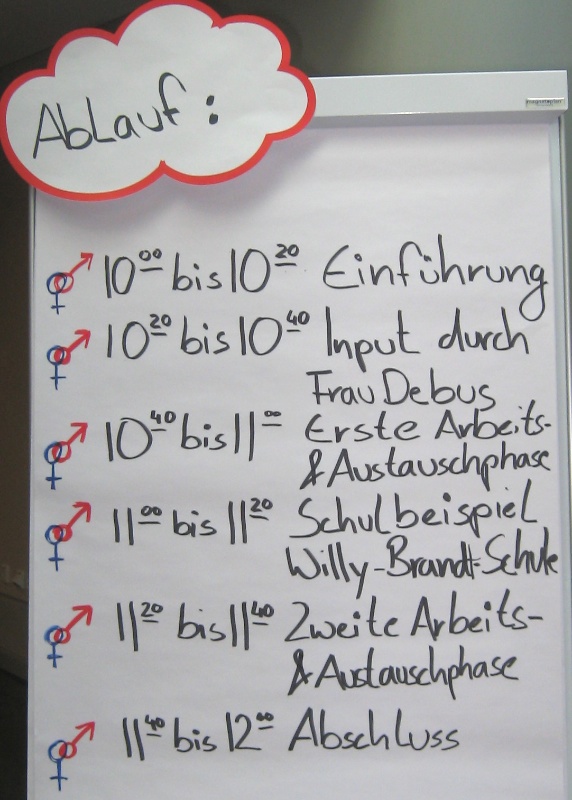 Ablauf:
10⁰⁰ bis 10²⁰ Einführung
10²⁰ bis 10⁴⁰ Input durch
Frau Debus
10⁴⁰ bis 11⁰⁰ Erste Arbeits-
& Austauschphase
11⁰⁰ bis 11²⁰ Schulbeispiel
Willy-Brandt-Schule
11²⁰ bis 11⁴⁰ Zweite Arbeits-
& Austauschphase
11⁴⁰ bis 12⁰⁰ Abschluss